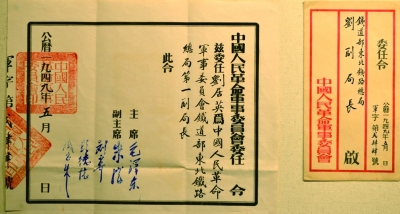 中國人民革命軍事委員會委任 令
茲委任劉居英爲中國人民革命
軍事委員會鐵道部東北鐵路
總局第一副局長
此令
主席 毛澤東
副主席 朱德
劉少奇
周恩來
彭德懷
公曆一九四九年五月 日
軍字第 號
中國人民
委任令
鐵道部東北鐵路總局
劉副局長 啟
公曆一九四九年五月 日
軍字第 號
中國人民革命軍事委員會